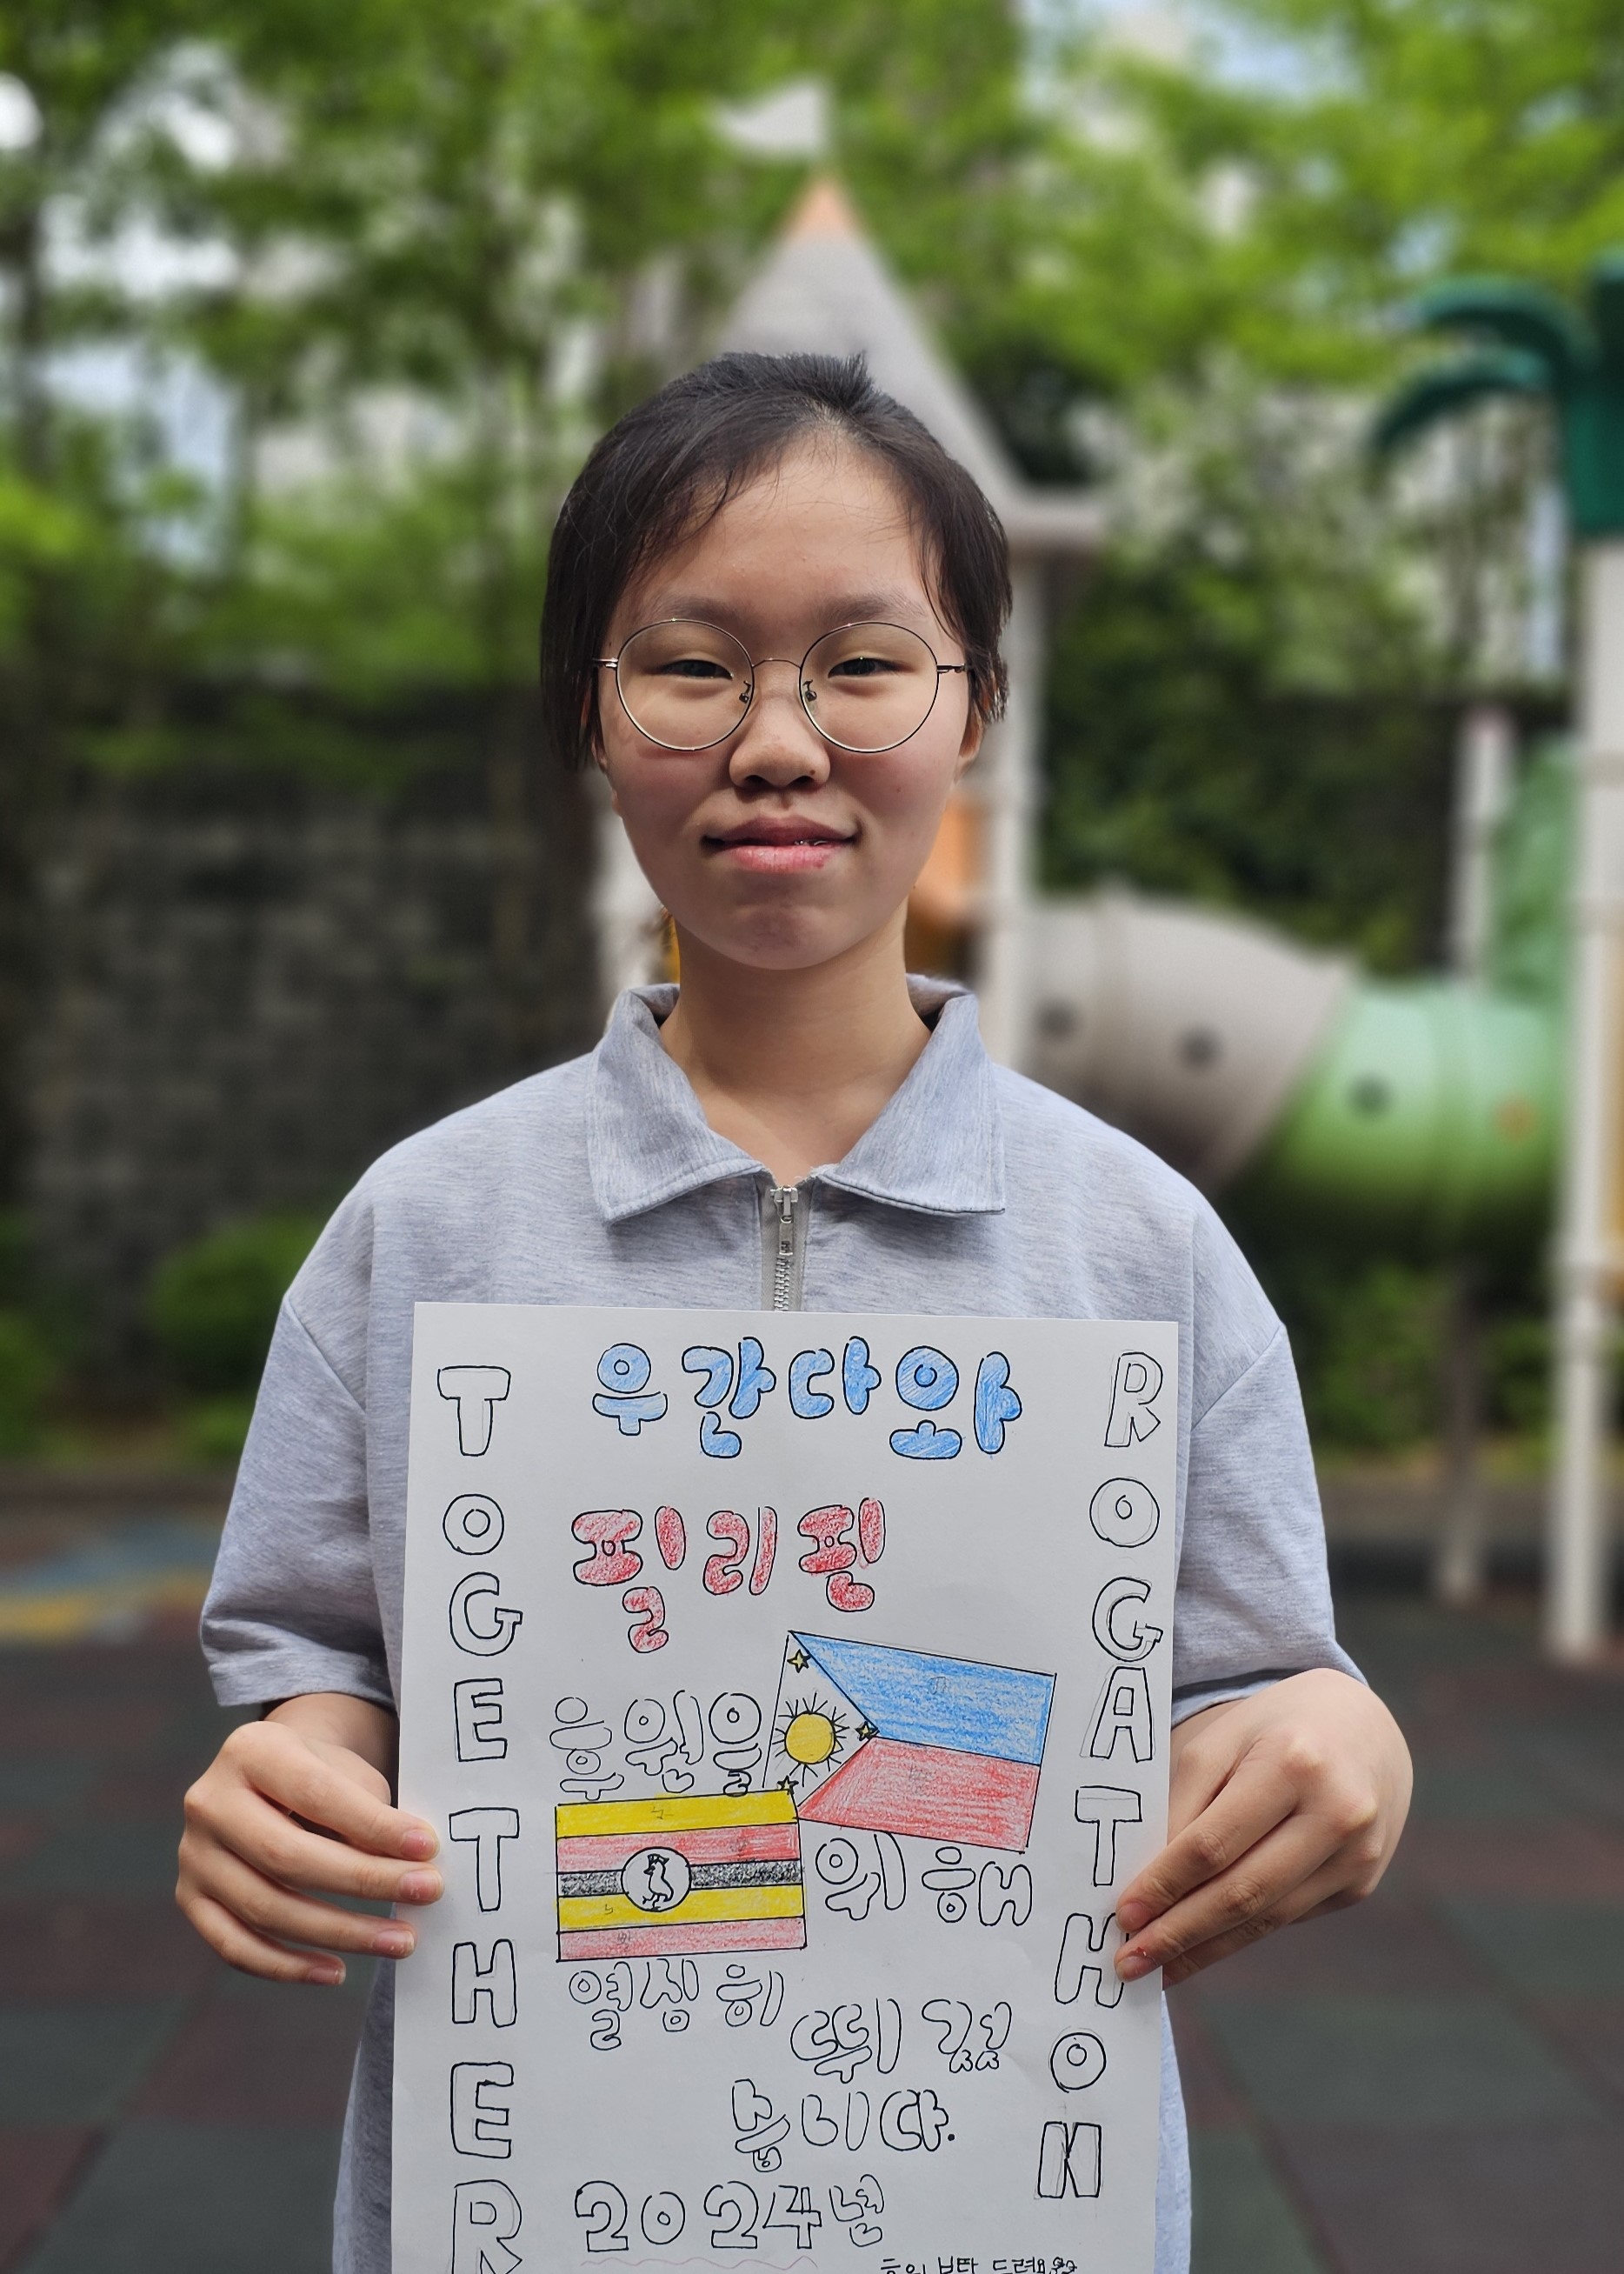 TOGETHER
우간다와
필리핀
후원을
위해
열심히
뛰겠
습니다.
2024년
ROGATHON